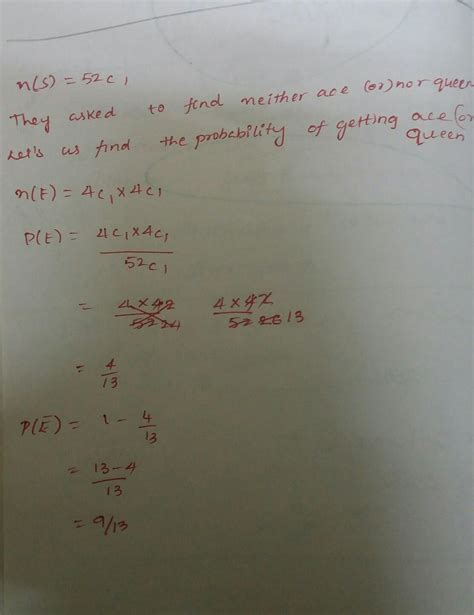 n(S) = 52c₁
They asked to find neither ace (or) nor queen
Let's us find the probability of getting ace (or
queen
n(E) = 4c₁ x 4c₁
P(E) = 4c₁ x 4c₁ / 52c₁
= 4 x 4 / 52 4 x 4 / 52 26 13
= 4/13
P(E̅) = 1 - 4/13
= 13-4 / 13
= 9/13